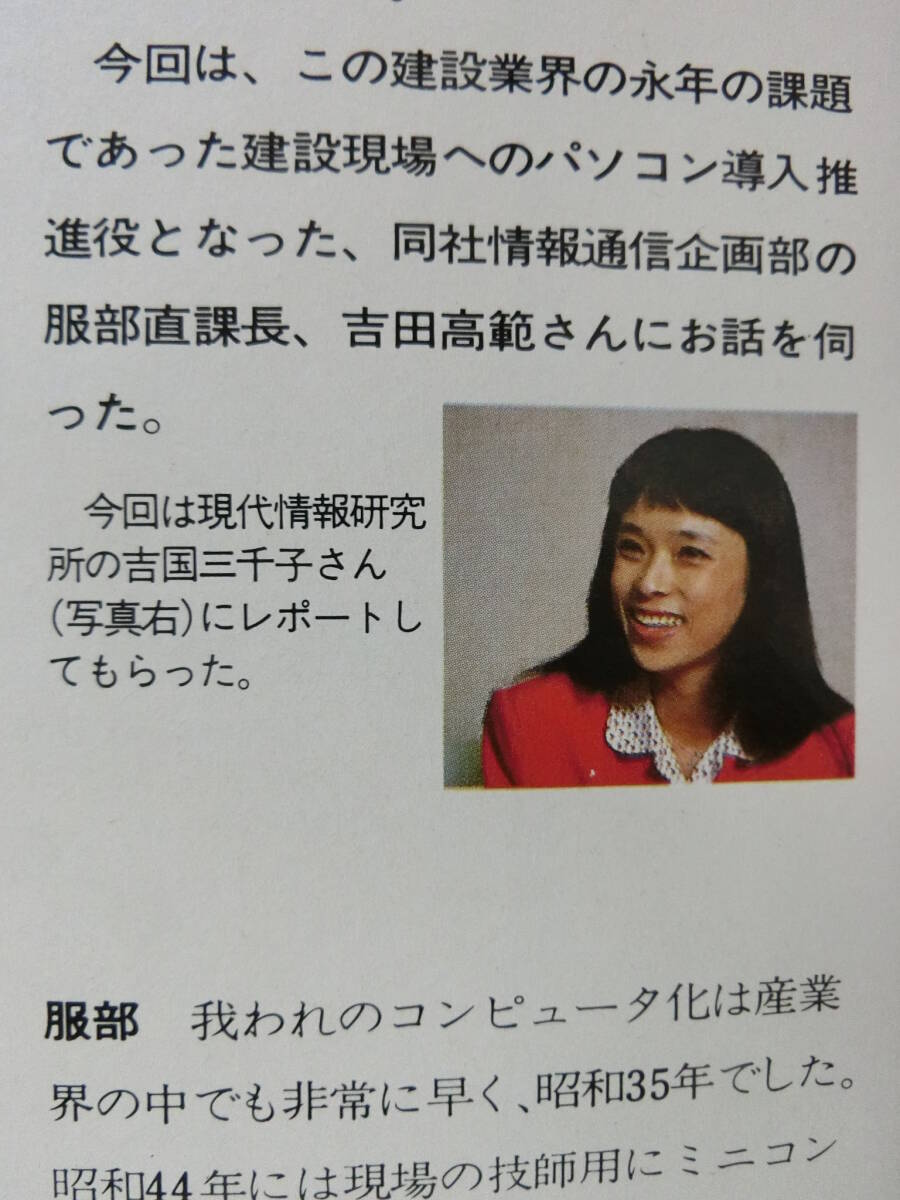 今回は、この建設業界の永年の課題
であった建設現場へのパソコン導入推
進役となった、同社情報通信企画部の
服部直課長、吉田高範さんにお話を伺
った。
今回は現代情報研究
所の吉国三千子さん
(写真右)にレポートし
てもらった。
服部 我われのコンピュータ化は産業
界の中でも非常に早く、昭和35年でした。
昭和44年には現場の技師用にミニコン